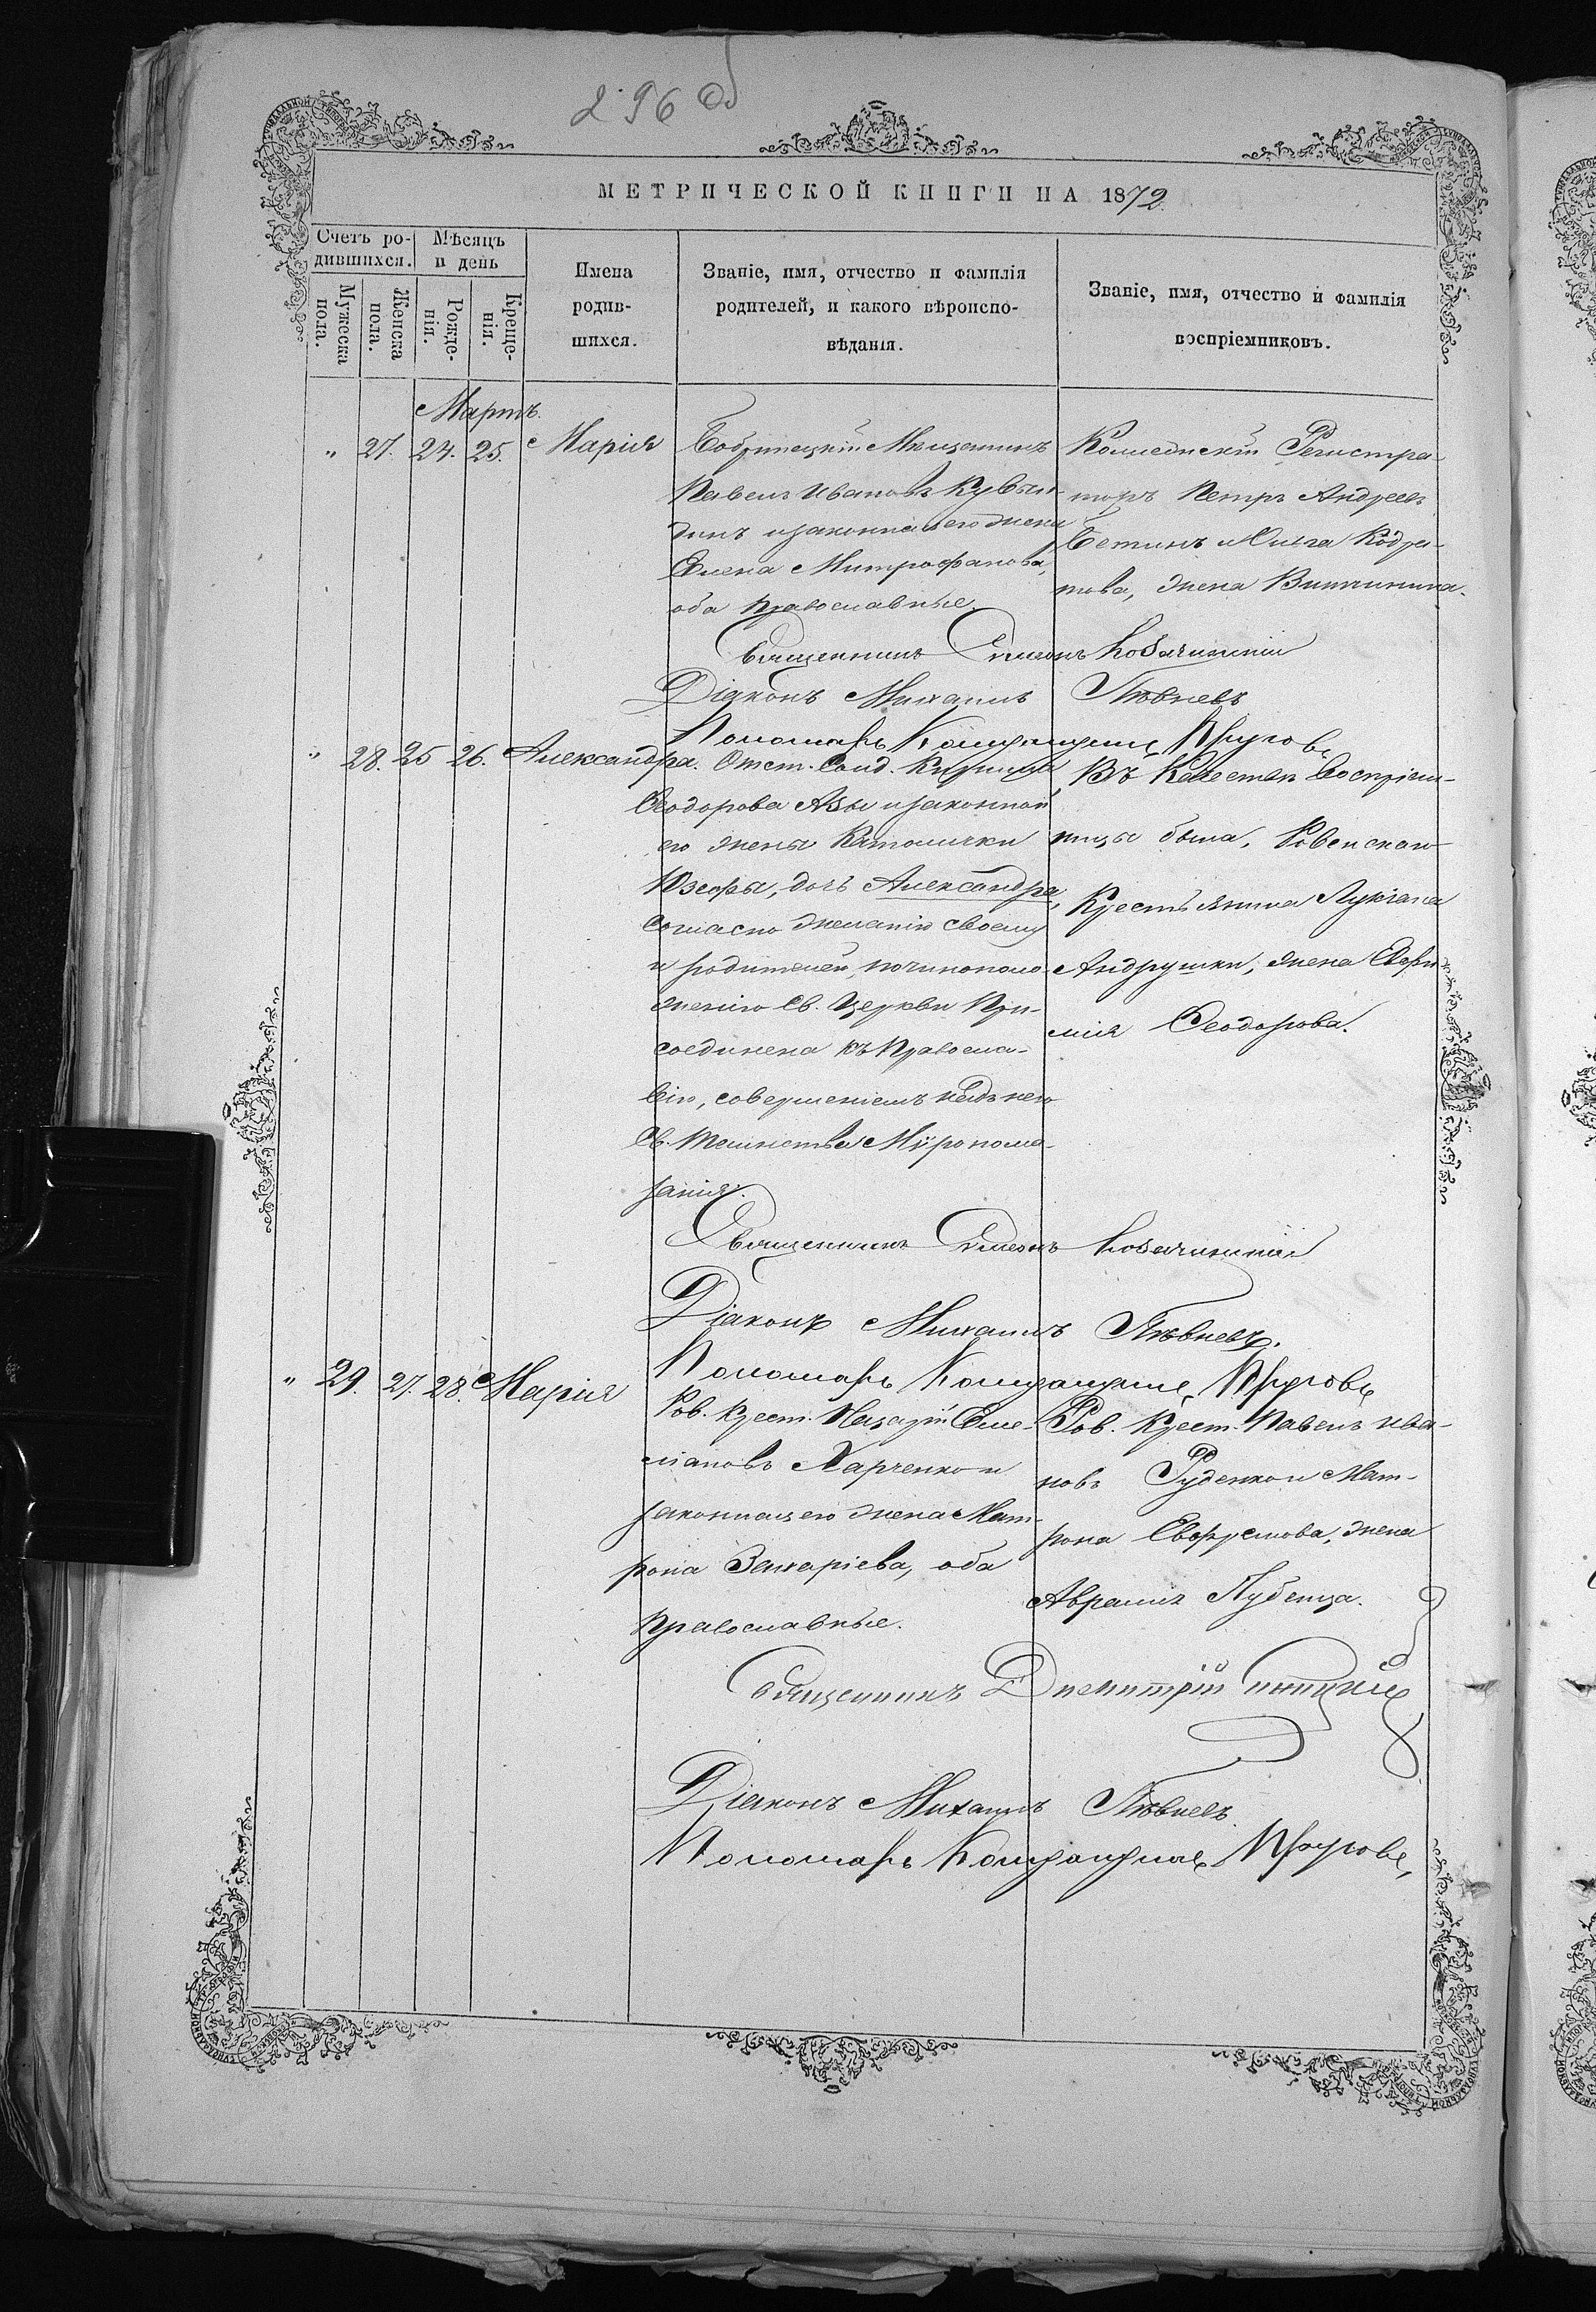 296 об
МЕТРИЧЕСКОЙ КНИГИ НА 1872
Счетъ ро-
дившихся.
Мѣсяцъ
и день
Мужеска
пола.
Женска
пола.
Рожде-
нія.
Креще-
нія.
Имена
родив-
шихся.
Званіе, имя, отчество и фамилія
родителей, и какого вѣроиспо-
вѣданія.
Званіе, имя, отчество и фамилія
воспріемниковъ.
Мартъ.
" 27. 24. 25. Марія
Бобринецкій Мѣщанинъ
Павелъ Ивановъ
и законная его жена
Елена Митрофанова,
оба Православные.
Коллежскій Регистра-
торъ Петръ Андреевъ
Бетинъ и Ольга Кодра-
това, жена
Священникъ Симеонъ
Діаконъ Михаилъ Пѣвневъ
Пономарь Круговъ
" 28. 25 26. Александра.
Отст. Солд. Кирилла
Ѳеодорова Азы и законной
его жены Католички
Юзефы, дочь Александра,
согласно желанію своему
и родителей, по чинополо-
женію Св. Церкви При-
соединена къ Правосла-
вію, совершеніемъ надъ нею
Св. Таинства Мѵропома-
занія.
Въ Качествѣ Воспріем-
ницы была, Ровенскаго
Крестьянина Лукіана
Андрушки, жена Евфи-
мія Ѳеодорова.
Священникъ Симеонъ
Діаконъ Михаилъ Пѣвневъ.
Пономарь Круговъ
" 29. 27. 28. Марія
Ров. Крест. Назарій Еме-
ліановъ Харченко и
законная его жена Мат-
рона Захаріева, оба
Православные.
Ров. Крест. Павелъ Ива-
новъ Руденко и Мат-
рона Евфремова, жена
Аврамія Лубенца.
Священникъ Димитрій
Діаконъ Михаилъ Пѣвневъ.
Пономарь Круговъ